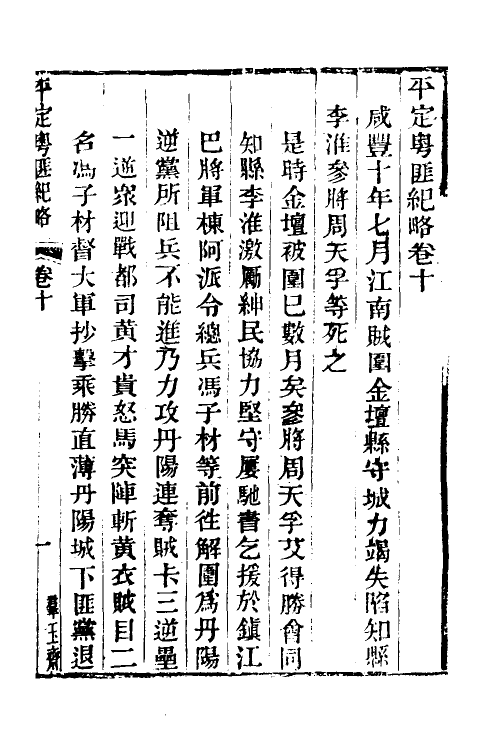 平定粵匪紀略卷十
咸豐十年七月江南賊圍金壇縣守城力竭失陷知縣
李淮參將周天孚等死之
是時金壇被圍已數月矣參將周天孚艾得勝會同
知縣李淮激厲紳民協力堅守屢馳書乞援於鎮江
巴將軍棟阿派令總兵馮子材等前徃解圍爲丹陽
逆黨所阻兵不能進乃力攻丹陽連奪賊卡三逆壘
一逆衆迎戰都司黃才貴怒馬突陣斬黃衣賊目二
名馮子材督大軍抄擊乘勝直薄丹陽城下匪黨退
平定粵匪紀略 卷十 一 羣玉齋